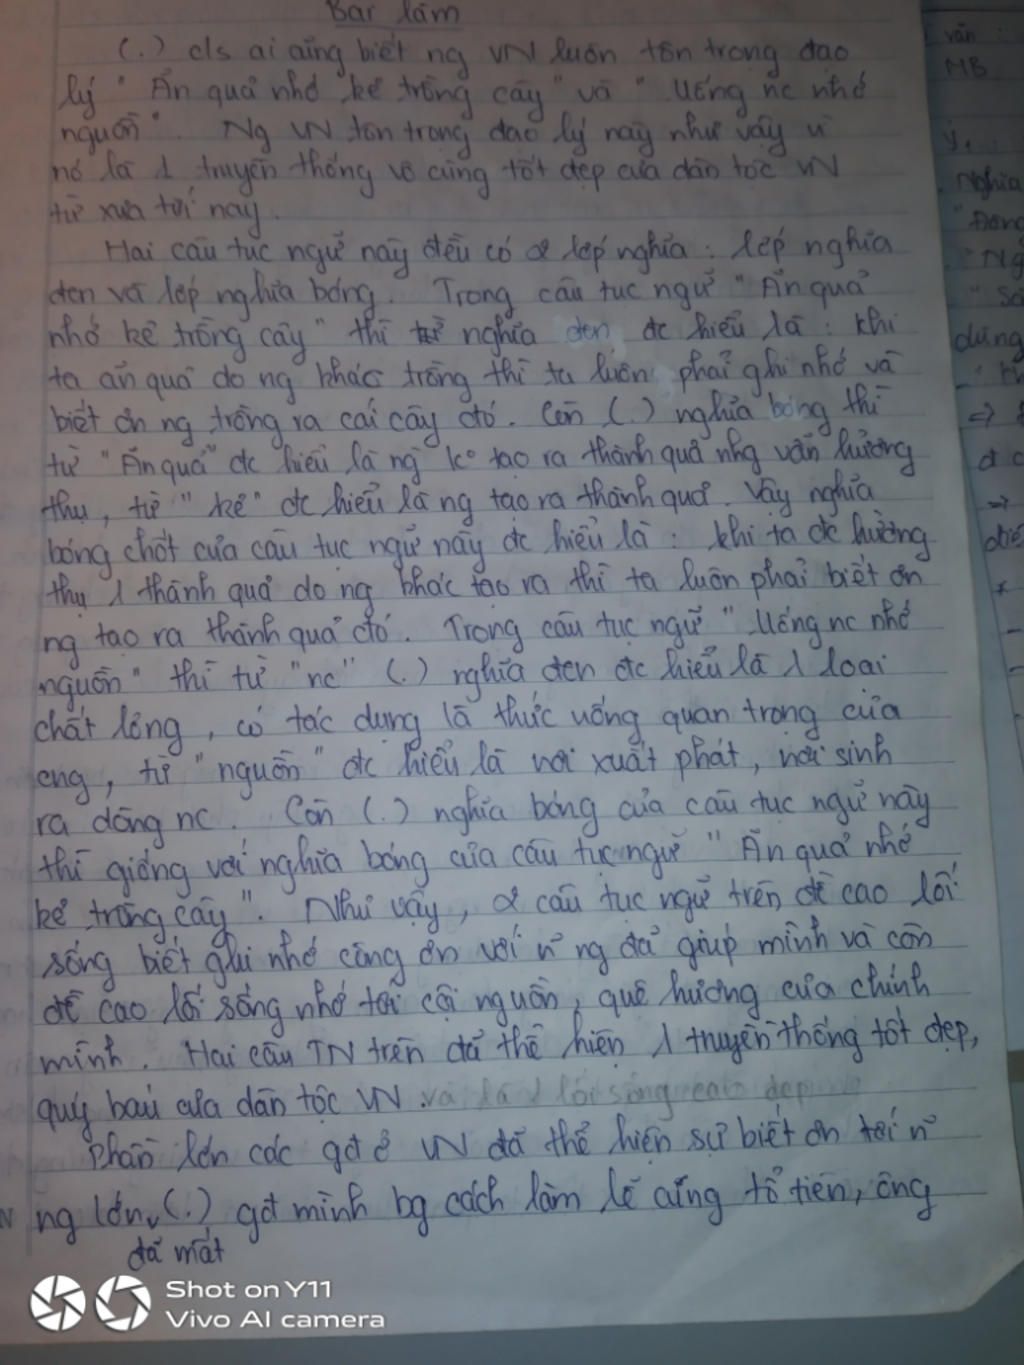 Bài làm
(.) c/s ai cũng biết ng VN luôn tôn trọng đạo
lý "Ăn quả nhớ kẻ trồng cây" và "Uống nc nhớ
nguồn". Ng VN tôn trọng đạo lý này như vậy vì
nó là 1 truyền thống vô cùng tốt đẹp của dân tộc VN
từ xưa tới nay.
Hai câu tục ngữ này đều có 2 lớp nghĩa: lớp nghĩa
đen và lớp nghĩa bóng. Trong câu tục ngữ "Ăn quả
nhớ kẻ trồng cây" thì nghĩa đen đc hiểu là: khi
ta ăn quả do ng khác trồng thì ta luôn phải ghi nhớ và
biết ơn ng trồng ra cái cây đó. Còn (.) nghĩa bóng thì
từ "Ăn quả" đc hiểu là ng ko tạo ra thành quả nhg vẫn hưởng
thụ, từ "kẻ" đc hiểu là ng tạo ra thành quả. Vậy nghĩa
bóng chốt của câu tục ngữ này đc hiểu là: khi ta đc hưởng
thụ 1 thành quả do ng khác tạo ra thì ta luôn phải biết ơn
ng tạo ra thành quả đó. Trong câu tục ngữ "Uống nc nhớ
nguồn" thì từ "nc" (.) nghĩa đen đc hiểu là 1 loại
chất lỏng, có tác dụng là thức uống quan trọng của
cng, từ "nguồn" đc hiểu là nơi xuất phát, nơi sinh
ra dòng nc. Còn (.) nghĩa bóng của câu tục ngữ này
thì giống với nghĩa bóng của câu tục ngữ "Ăn quả nhớ
kẻ trồng cây". Như vậy, 2 câu tục ngữ trên đề cao lối
sống biết ghi nhớ công ơn với n~ ng đã giúp mình và còn
đề cao lối sống nhớ tới cội nguồn, quê hương của chính
mình. Hai câu TN trên đã thể hiện 1 truyền thống tốt đẹp,
quý báu của dân tộc VN. và là 1 lối sống cao đẹp
Phần lớn các gđ ở VN đã thể hiện sự biết ơn tới n~
ng lớn (.) gđ mình bg cách làm lễ cúng tổ tiên, ông
đã mất
Shot on Y11
Vivo AI camera
văn
MB
ý.
Nghĩa
dùng